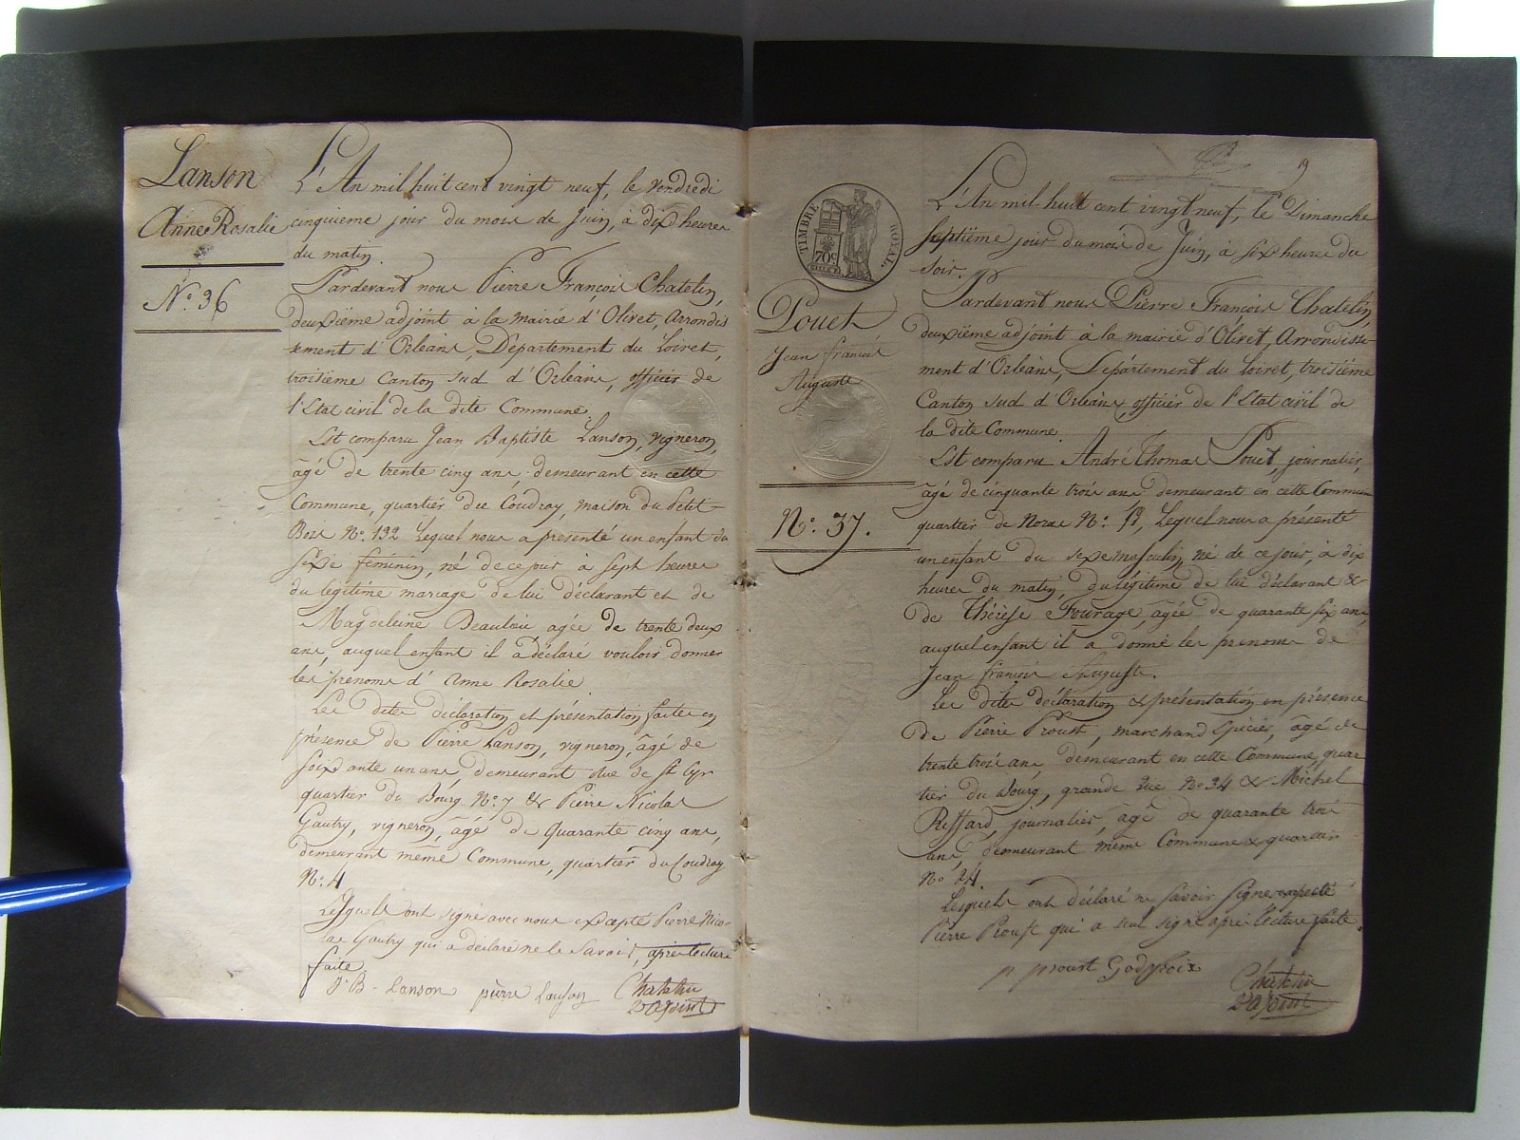 Lanson
Anne Rosalie
N°. 36
L'An mil huit cent vingt neuf, le vendredi
cinquieme jour du mois de Juin, à dix heures
du matin.
Pardevant nous Pierre François Chatelin,
deuxième adjoint à la mairie d'Olivet, Arrondis
sement d'Orleans, Département du Loiret,
troisieme Canton sud d'Orléans, officier de
l'Etat civil de la dite Commune.
Est comparu Jean Baptiste Lanson, vigneron,
âgé de trente cinq ans, demeurant en cette
Commune, quartier du Coudray, maison du Petit
Bois N°. 132 Lequel nous a presenté un enfant du
sexe féminin, né de ce jour à sept heures
du légitime mariage de lui déclarant et de
Magdeleine agée de trente deux
ans, auquel enfant il a déclaré vouloir donner
les prenoms d'Anne Rosalie
Les dites déclaration et présentation faites en
présence de Pierre Lanson, vigneron, âgé de
soixante un ans, demeurant rue de St Cyr
quartier du Bourg N°. 7 & Pierre Nicolas
Gautry, vigneron, âgé de Quarante cinq ans,
demeurant même Commune, quartier du Coudray
N°. 4
Lesquels ont signé avec nous excepté Pierre Nico-
las Gautry qui a declaré ne le savoir, après lecture
faite.
J. B. Lanson pierre Lanson Chatelin
adjoint
9
TIMBRE ROYAL.
70c
Pouet
Jean françois
Auguste
N°. 37.
L'An mil-huit cent vingt neuf, le Dimanche
septième jour du mois de Juin, à six heures du
soir.
Pardevant nous Pierre François Chatelin,
deuxième adjoint à la mairie d'Olivet, Arrondisse-
ment d'Orléans, Département du Loiret, troisième
Canton sud d'Orléans officier de l'Etat civil de
la dite Commune.
Est comparu André Thomas Pouet, journalier,
âgé de cinquante trois ans demeurant en cette Commune
quartier de N°. Lequel nous a présenté
un enfant du sexe masculin, né de ce jour, à dix
heures du matin, du légitime de lui déclarant &
de Thérèse Fourage, agée de quarante six ans,
auquel enfant il a donné les prenoms de
Jean françois Auguste.
Les dites déclaration & présentation en présence
de Pierre Proust, marchand Epicier, âgé de
trente trois ans, demeurant en cette Commune, quar
tier du Bourg, grande rue N° 34 & Michel
Riffard, journalier, âgé de quarante trois
ans, demeurant même Commune & quartier
N° 24.
Lesquels ont déclaré ne savoir signer excepté
Pierre Proust qui a seul signé après lecture faite.
p proust Godefroix Chatelin
adjoint